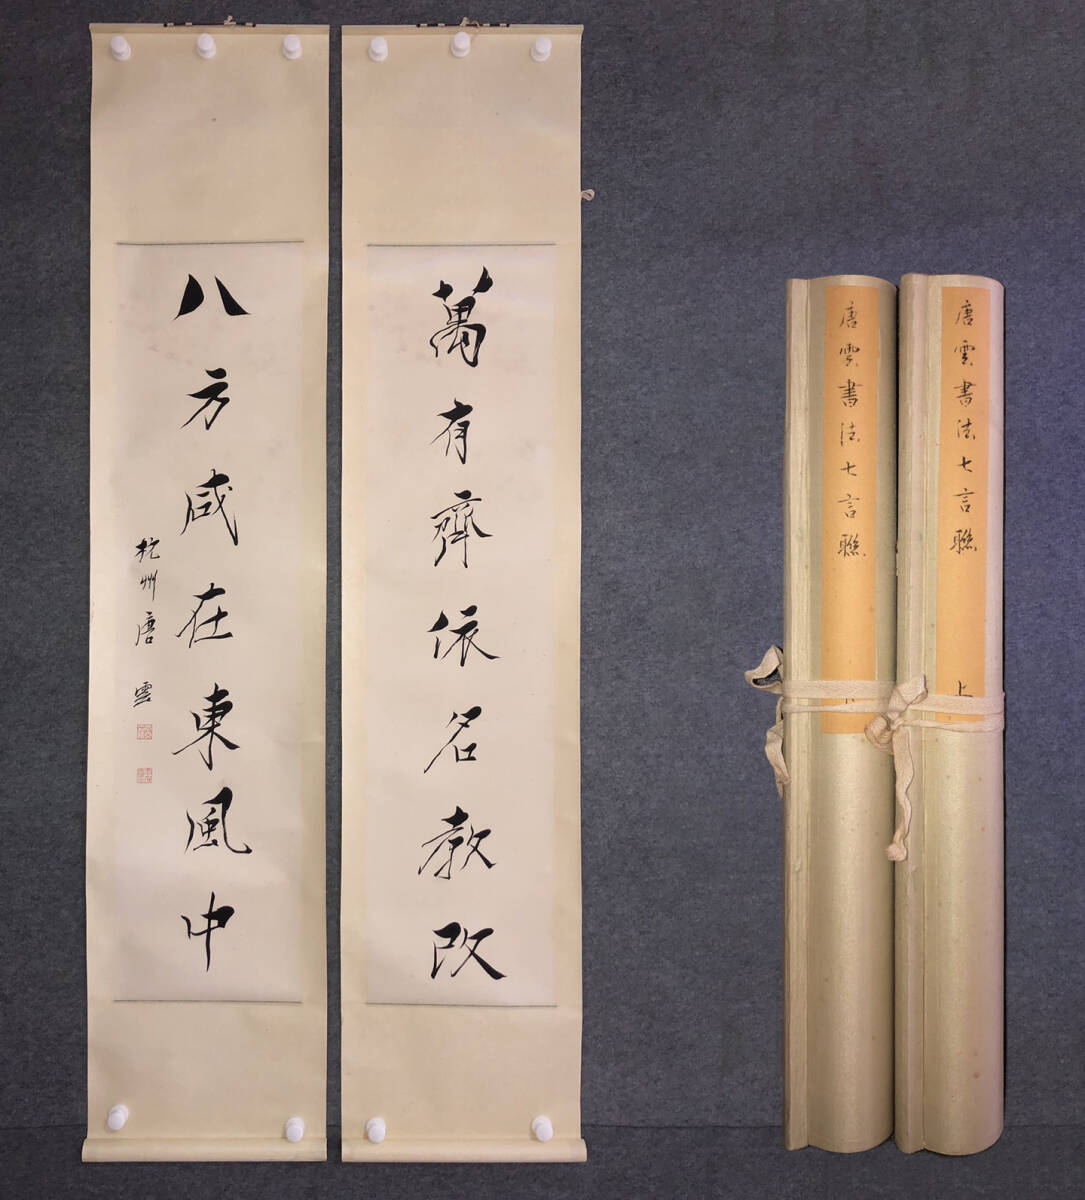 萬有齊依名教改
八方咸在東風中
杭州唐雲
唐雲書法七言聯 上
唐雲書法七言聯